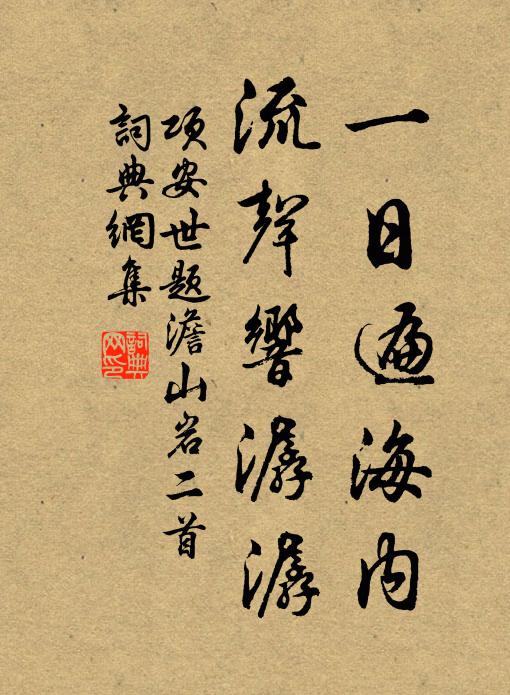 一日遍海内
流聲響潺潺
項安世題澹山岩二首
詞典網集
詞典網印